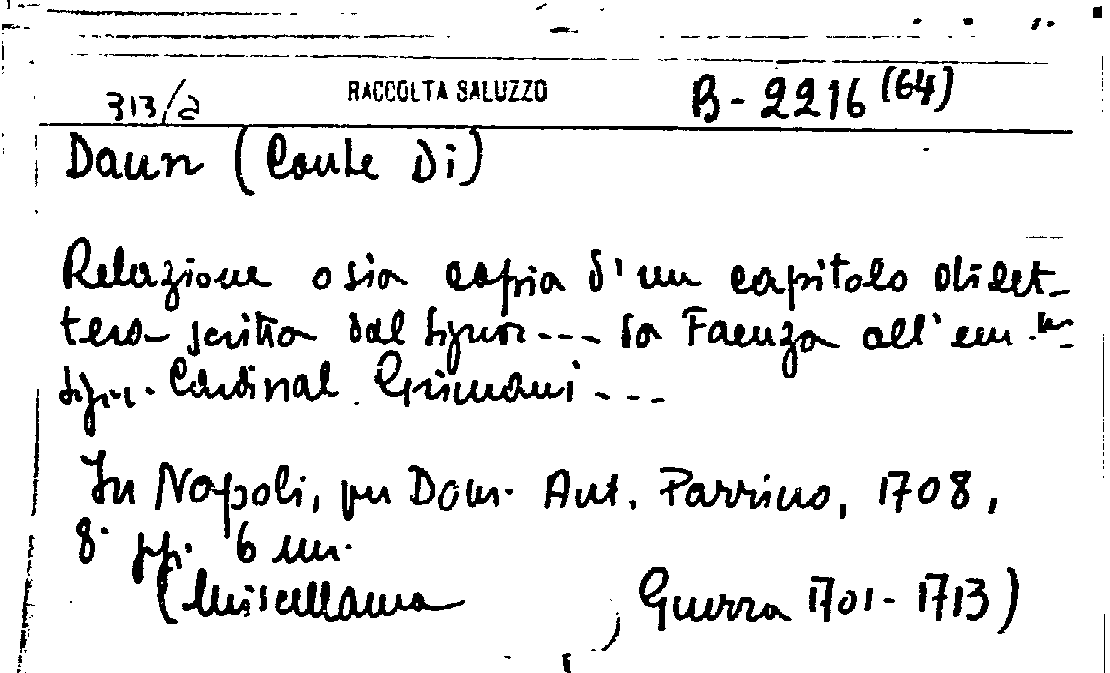 313/a RACCOLTA SALUZZO B-2216 (64)
Daun (Conte Di)
Relazione o sia copia d'un capitolo di let-
tera scritta dal Signor --- da Faenza all'em.mo
Sign. Cardinal Grimani ---
In Napoli, per Dom. Ant. Parrino, 1708,
8° pp. 6 nn.
(Miscellanea , Guerra 1701-1713)